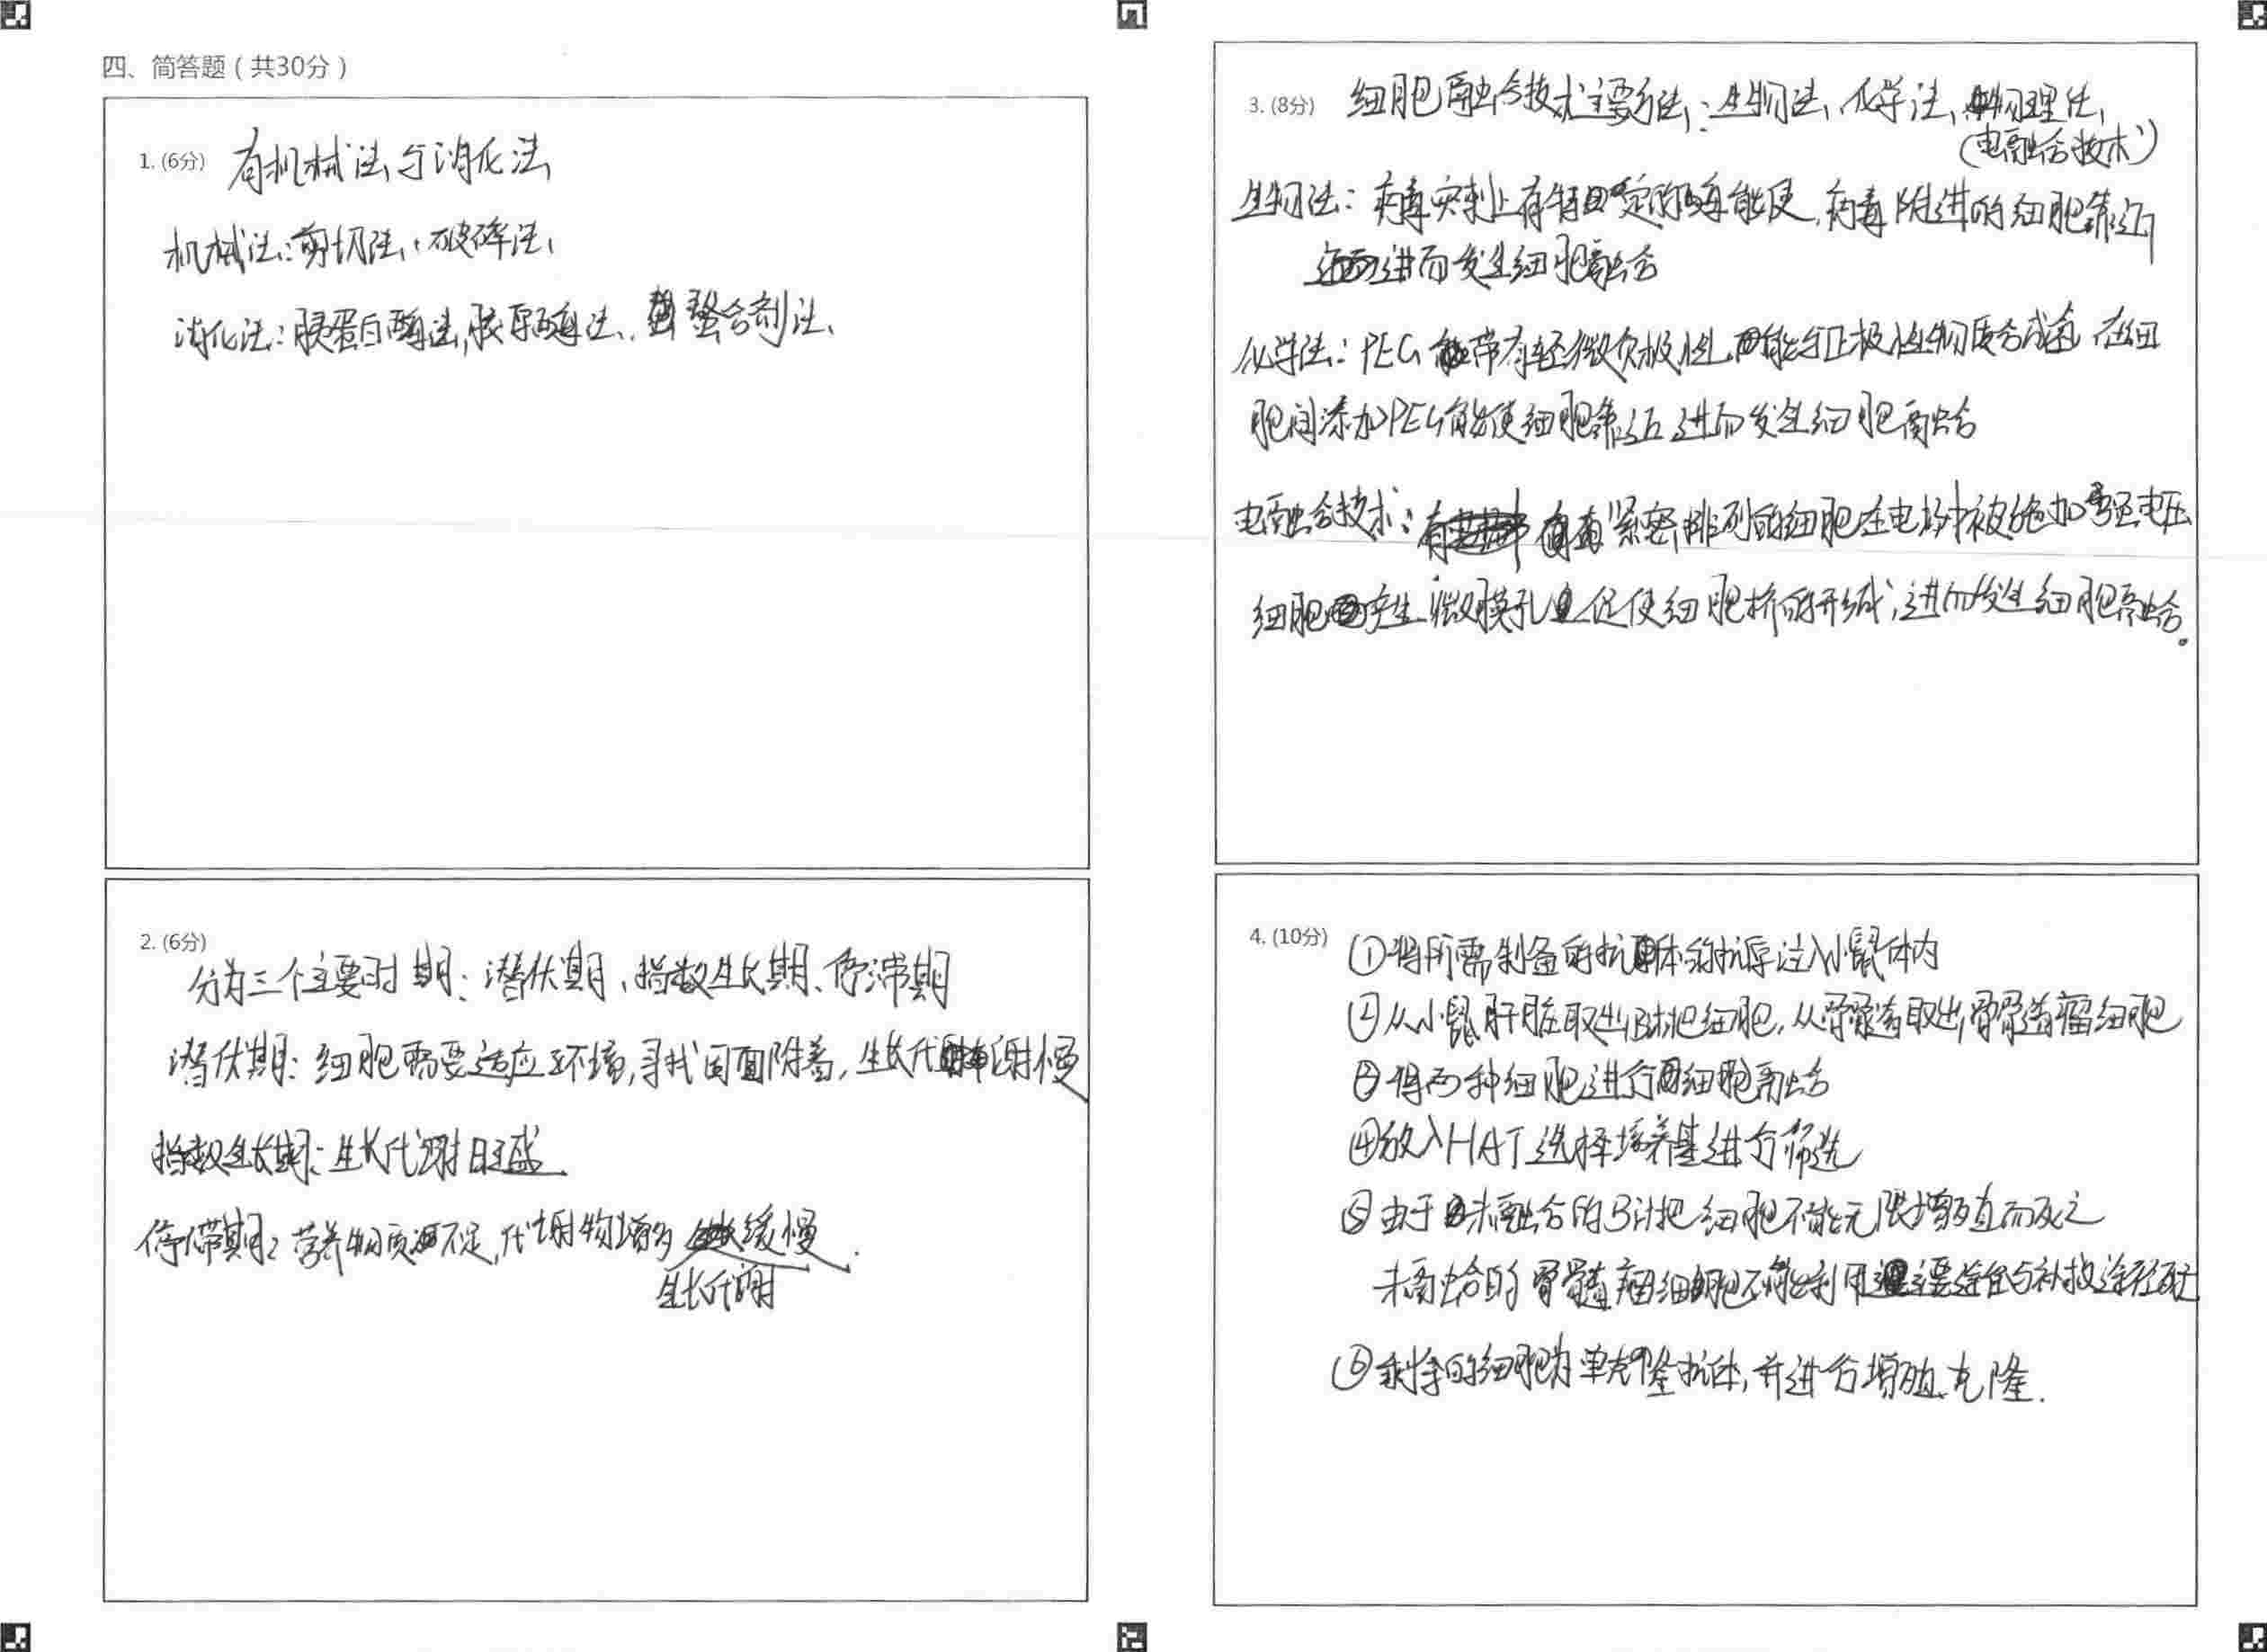 四、简答题（共30分）
1. (6分) 有机械法与消化法
机械法：剪切法、破碎法、
消化法：胰蛋白酶法,胶原酶法、螯合剂法、
2. (6分)
分为三个主要时期：潜伏期、指数生长期、停滞期
潜伏期：细胞需要适应环境,寻找固面附着,生长代谢慢
指数生长期：生长代谢旺盛
停滞期：营养物质不足,代谢物增多 缓慢.
生长代谢
3. (8分) 细胞融合技术主要方法：生物法、化学法、物理法,
（电融合技术）
生物法：病毒突刺上有特定的酶能使,病毒附进的细胞靠近
进而发生细胞融合
化学法：PEG 带有轻微负极性,能与正极性物质合成氢 在细
胞间添加PEG能使细胞靠近 进而发生细胞融合
电融合技术：有紧密排列的细胞在电场中被施加强电压
细胞产生微膜孔 促使细胞挤 ,进而发生细胞融合。
4. (10分) ①将所需制备的抗体的抗原注入小鼠体内
②从小鼠肝脏取出B淋巴细胞,从骨髓取出骨髓瘤细胞
③得两种细胞进行细胞融合
④放入HAT选择培养基进行筛选
⑤由于未融合的B淋巴细胞不能无限增殖而死亡
未融合的骨髓瘤细胞不能利用主要途径与补救途径死亡
⑥剩余的细胞为单克隆抗体,并进行增殖克隆.